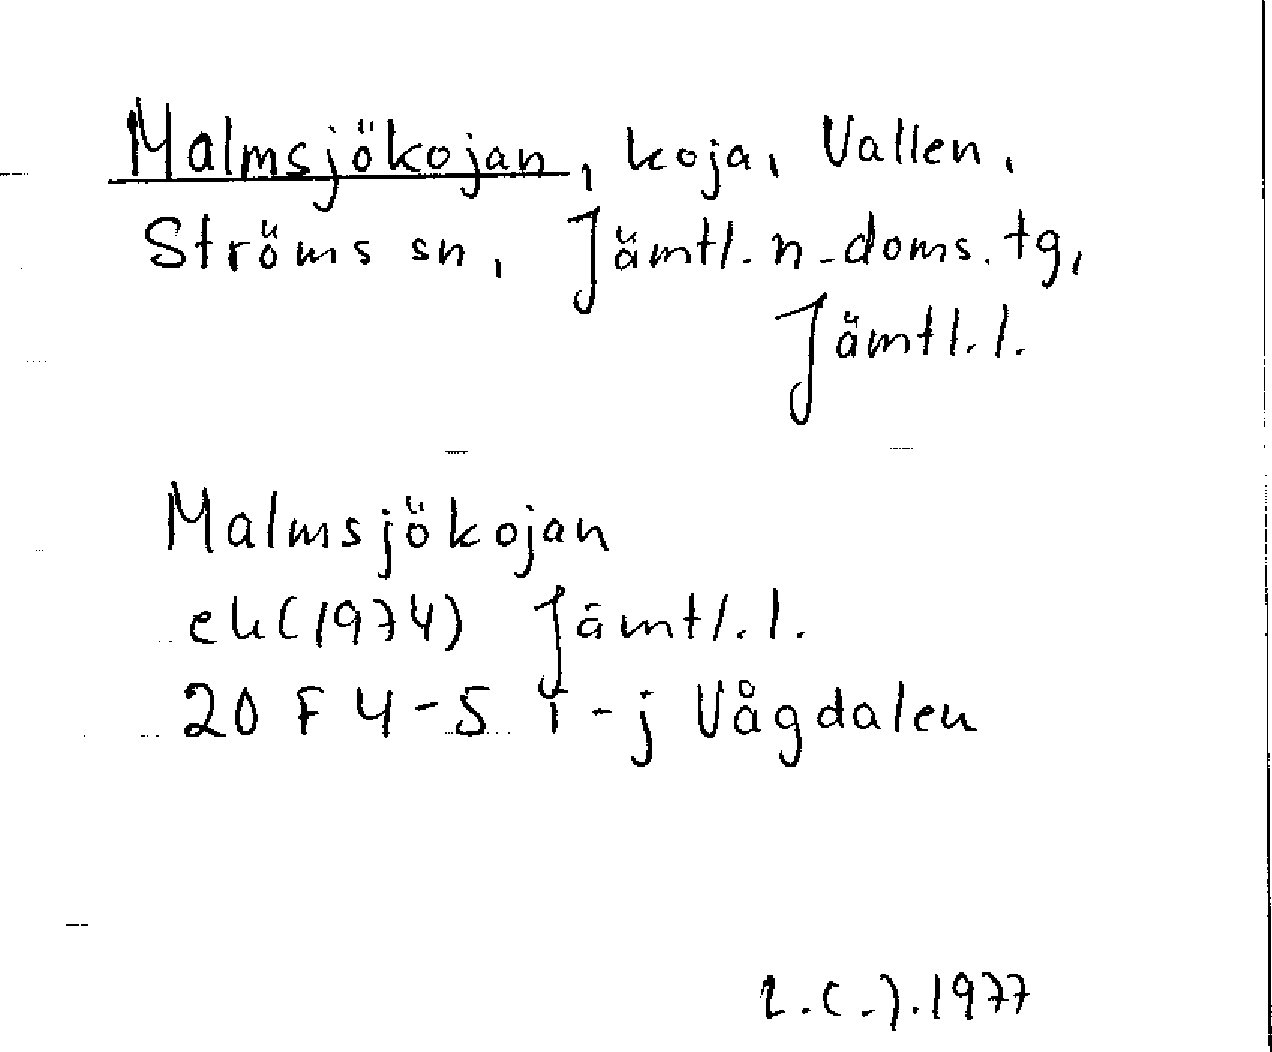 Malmsjökojan, koja, Vallen,
Ströms sn, Jämtl. n. doms. tg,
Jämtl. l.
Malmsjökojan
ek (1974) Jämtl. l.
20 F 4-5 i-j Vågdalen
1977